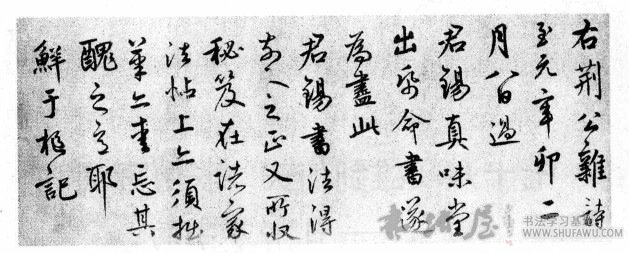 右荆公雜詩
至元辛卯二
月八日過
君錫真味堂
出紙命書遂
為盡此
君錫書法得
前人之正又所收
秘笈在諸家
法帖上亦須拙
筆亦愛忘其
醜之意耶
鮮于樞記
书法学习基地
WWW.SHUFAWU.COM